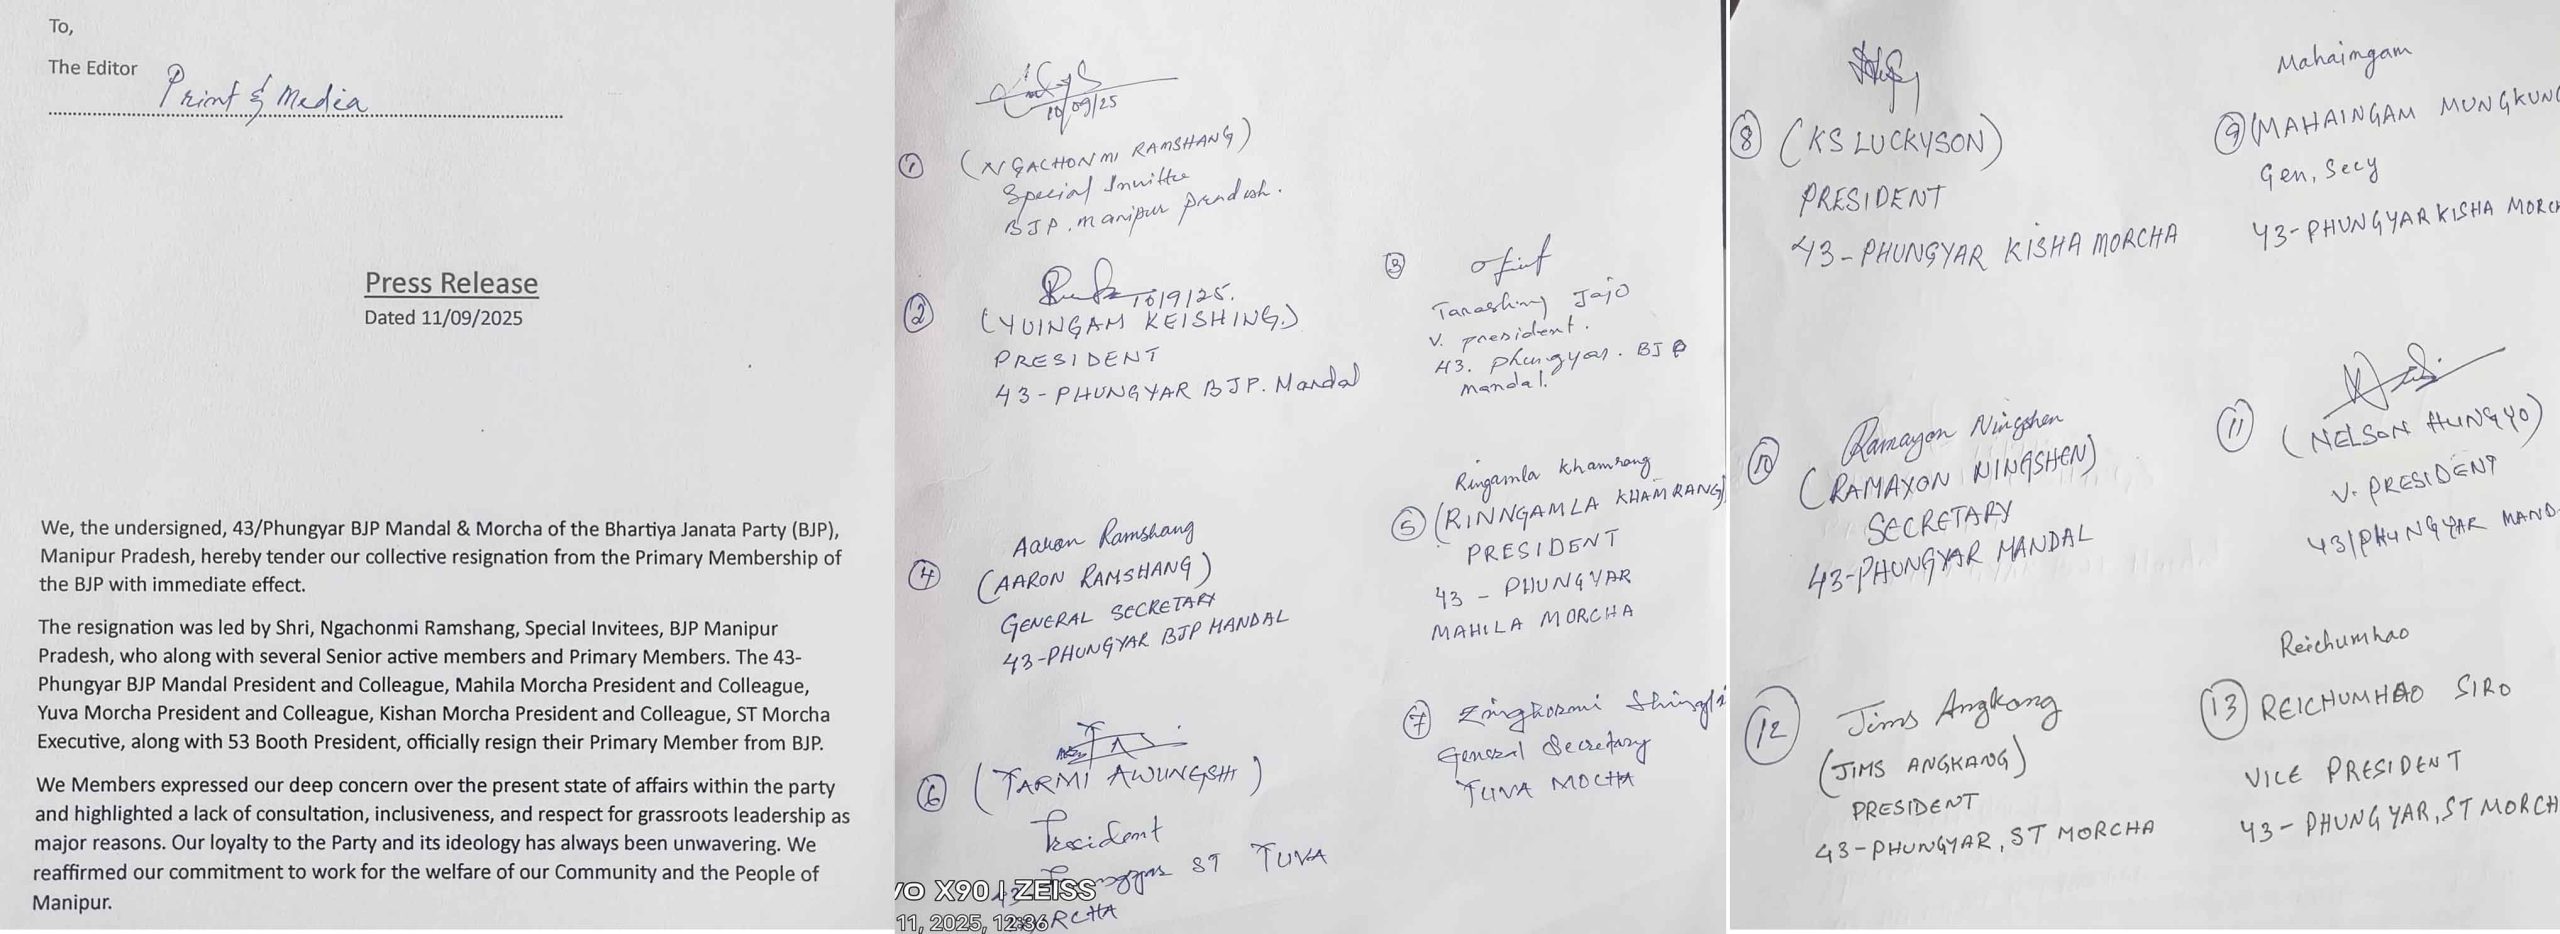 To,
The Editor
Print & Media
Press Release
Dated 11/09/2025
We, the undersigned, 43/Phungyar BJP Mandal & Morcha of the Bhartiya Janata Party (BJP),
Manipur Pradesh, hereby tender our collective resignation from the Primary Membership of
the BJP with immediate effect.
The resignation was led by Shri, Ngachonmi Ramshang, Special Invitees, BJP Manipur
Pradesh, who along with several Senior active members and Primary Members. The 43-
Phungyar BJP Mandal President and Colleague, Mahila Morcha President and Colleague,
Yuva Morcha President and Colleague, Kishan Morcha President and Colleague, ST Morcha
Executive, along with 53 Booth President, officially resign their Primary Member from BJP.
We Members expressed our deep concern over the present state of affairs within the party
and highlighted a lack of consultation, inclusiveness, and respect for grassroots leadership as
major reasons. Our loyalty to the Party and its ideology has always been unwavering. We
reaffirmed our commitment to work for the welfare of our Community and the People of
Manipur.
10/09/25
1 (NGACHONMI RAMSHANG)
Special Invittee
BJP. Manipur Pradesh.
10/9/25.
2 (YUINGAM KEISHING.)
PRESIDENT
43-PHUNGYAR BJP. Mandal
3
Tanashing Jajo
V. president.
43. Phungyar. BJP
mandal.
Aaron Ramshang
4 (AARON RAMSHANG)
GENERAL SECRETARY
43-PHUNGYAR BJP MANDAL
Ringamla Khamrang
5 (RINNGAMLA KHAMRANG)
PRESIDENT
43 - PHUNGYAR
MAHILA MORCHA
6 (TARMI AWUNGSHI)
President
43 ST YUVA
MORCHA
7 Zingkormi
General Secretary
YUVA MOCHA
VO X90 | ZEISS
11, 2025, 12:36
8 (KS LUCKYSON)
PRESIDENT
43-PHUNGYAR KISHA MORCHA
Mahaimgam
9 (MAHAINGAM MUNGKUNG
Gen, Secy
43-PHUNGYAR KISHA MORCH
Ramayon Ningshen
10 (RAMAYON NINGSHEN)
SECRETARY
43-PHUNGYAR MANDAL
11 (NELSON HUNGYO)
V. PRESIDENT
43/PHUNGYAR MAND
12 Jims Angkang
(JIMS ANGKANG)
PRESIDENT
43-PHUNGYAR, ST MORCHA
Reichumhao
13 REICHUMHAO SIRO
VICE PRESIDENT
43-PHUNGYAR, ST MORCH